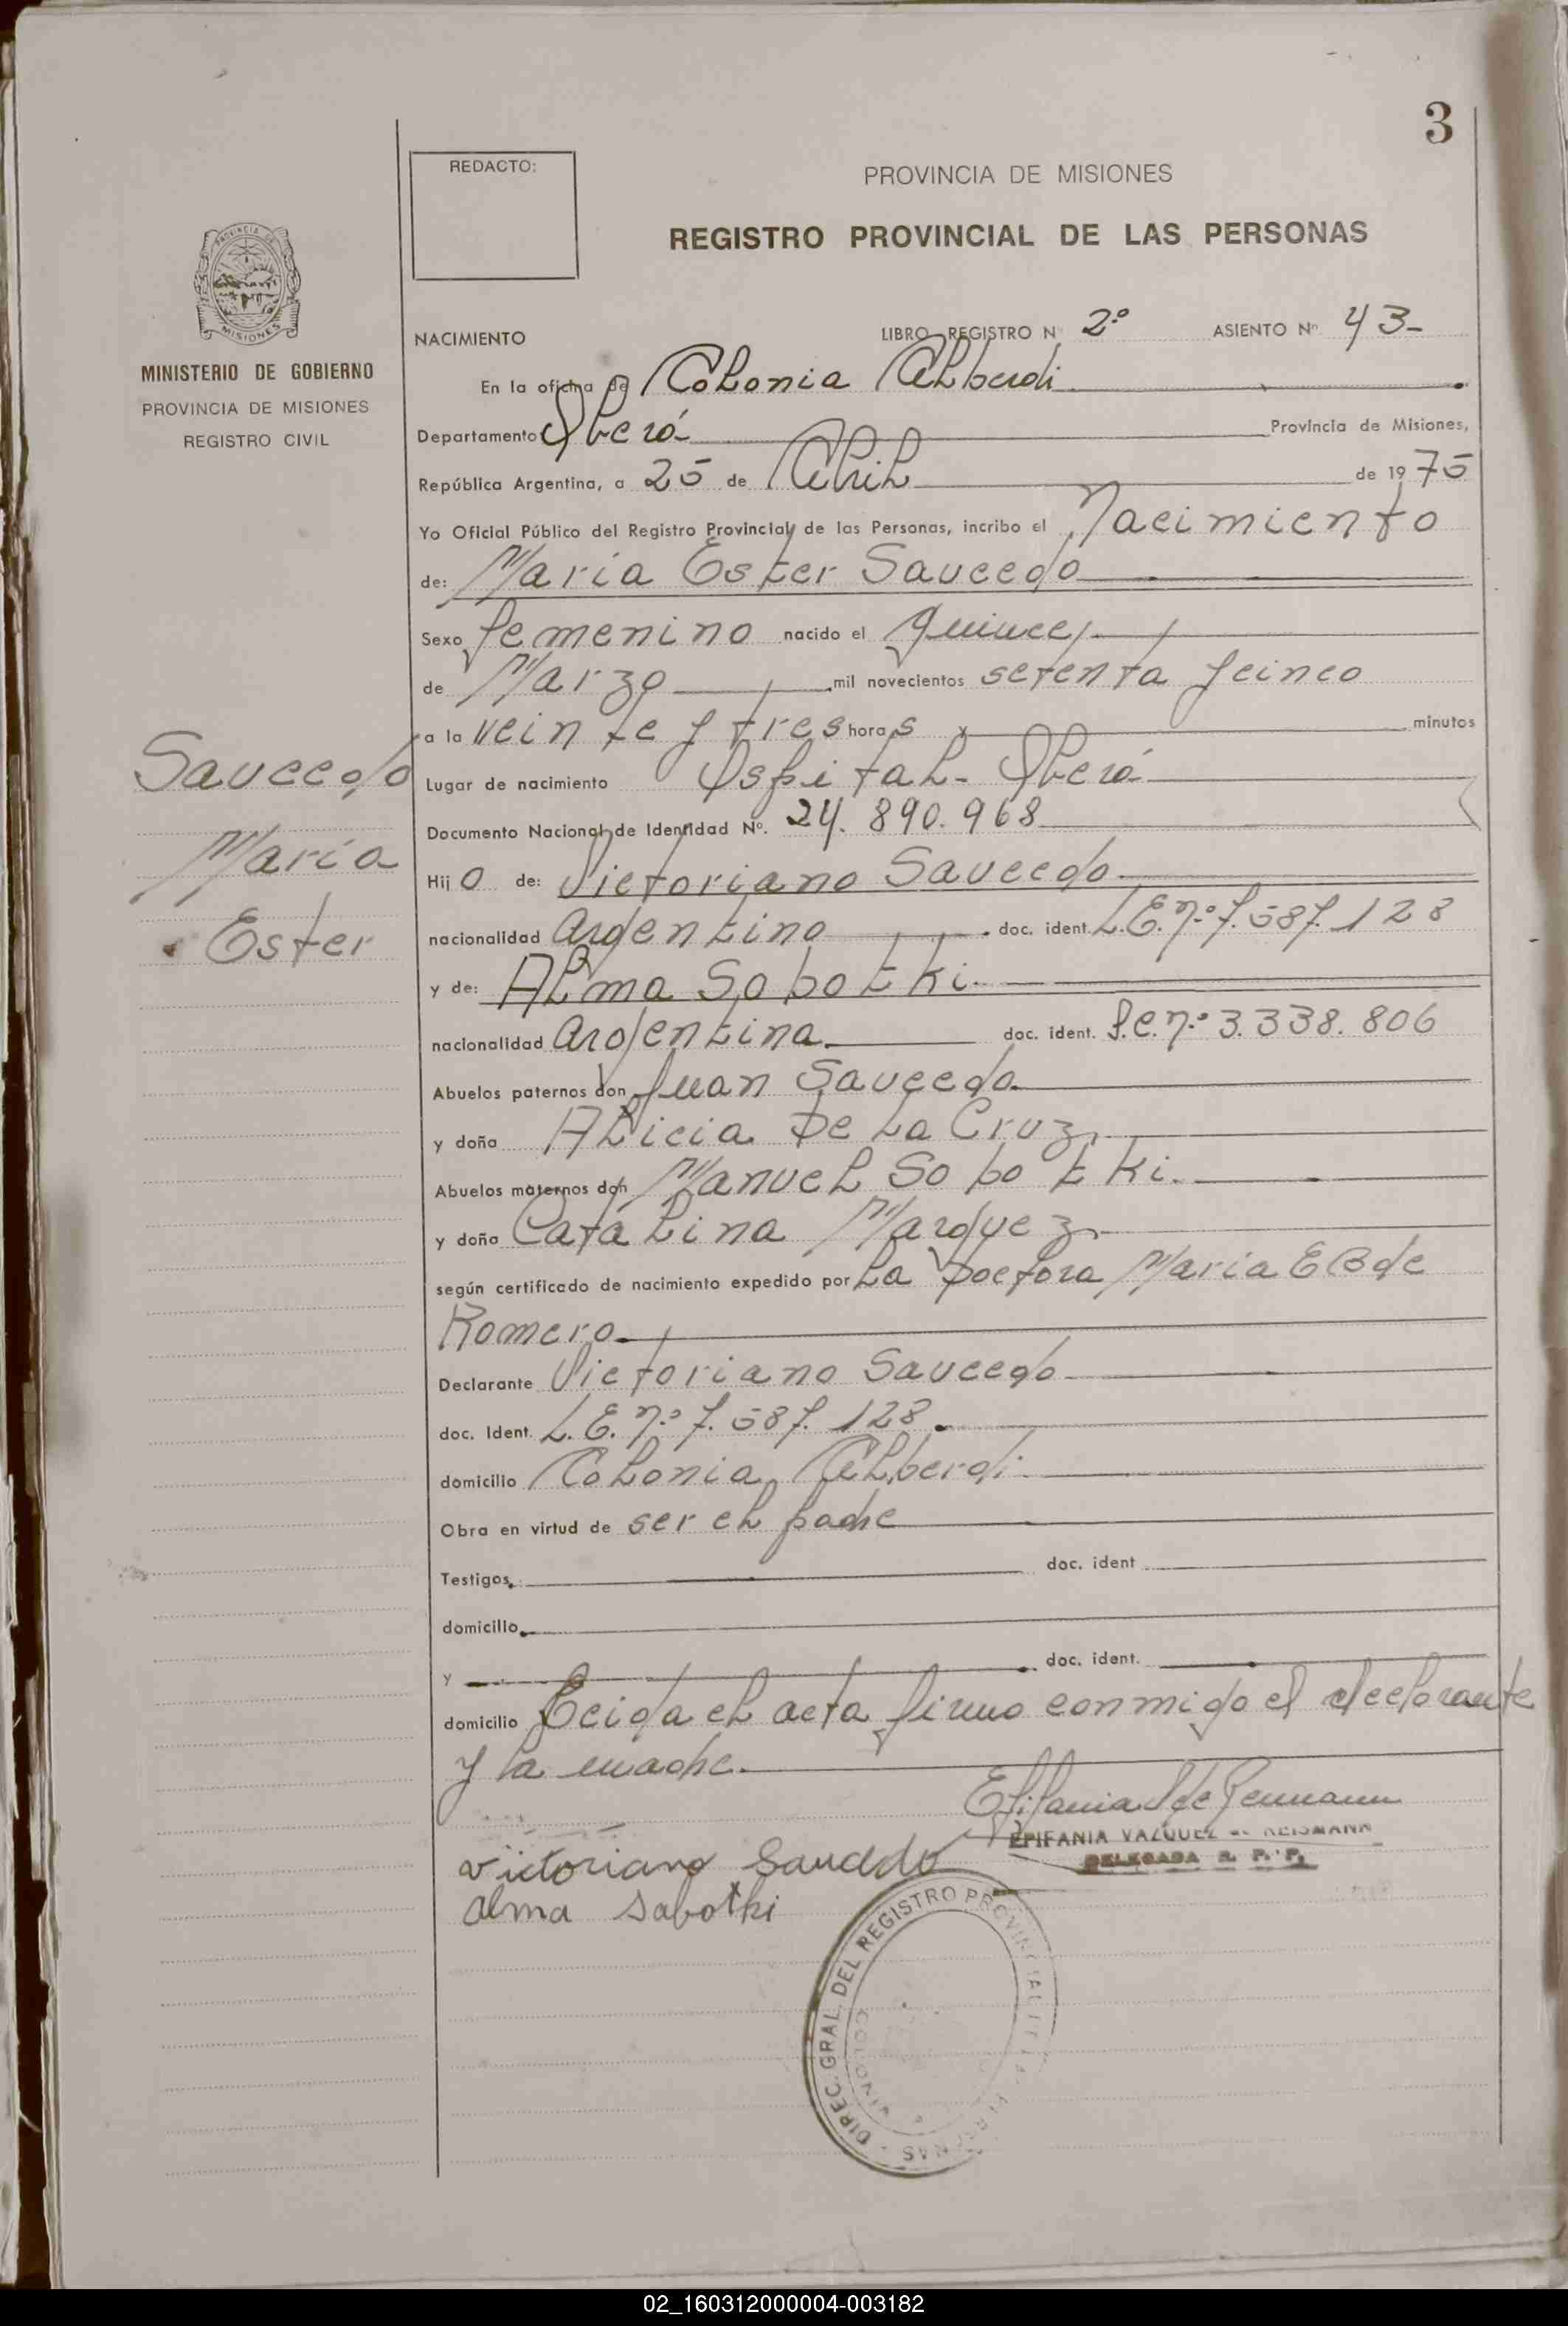 3
REDACTO:
PROVINCIA DE MISIONES
REGISTRO PROVINCIAL DE LAS PERSONAS
MISIONES
MINISTERIO DE GOBIERNO
PROVINCIA DE MISIONES
REGISTRO CIVIL
NACIMIENTO LIBRO REGISTRO N 2º ASIENTO Nº 43-
En la oficina de Colonia Alberdi
Departamento Oberá Provincia de Misiones,
República Argentina, a 25 de Abril de 1975
Yo Oficial Público del Registro Provincial de las Personas, incribo el Nacimiento
de: Maria Ester Saucedo
Sexo femenino nacido el quince
de Marzo mil novecientos setenta y cinco
a la veinte y tres horas y minutos
Saucedo
Maria
Ester
Lugar de nacimiento Ospital- Oberá
Documento Nacional de Identidad Nº. 24.890.968
Hijo de: Victoriano Saucedo
nacionalidad argentino doc. ident. L.E.nº 7.587.128
y de: Alma Sobotki
nacionalidad argentina doc. ident. L.C.nº 3.338.806
Abuelos paternos don Juan Saucedo
y doña Alicia De La Cruz
Abuelos maternos don Manuel Sobotki
y doña Catalina Marquez
según certificado de nacimiento expedido por La Doctora Maria E B de
Romero
Declarante Victoriano Saucedo
doc. Ident. L.E.nº 7.587.128
domicilio Colonia Alberdi
Obra en virtud de ser el padre
Testigos doc. ident
domicilio
y doc. ident.
domicilio Leida el acta firmo conmigo el declarante
y la madre.
EPIFANIA VAZQUEZ de REISMANN
DELEGADA R. P. P.
Victoriano Saucedo
alma Sabotki
DIREC. GRAL. DEL REGISTRO PROVINCIAL
02_160312000004-003182